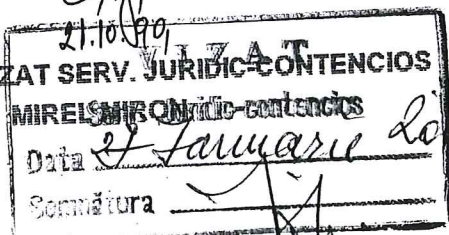 21.10
VIZAT
ZAT SERV. JURIDIC-CONTENCIOS
MIREL MIRON Juridic-contencios
Data 27 Ianuarie 20
Semnătura